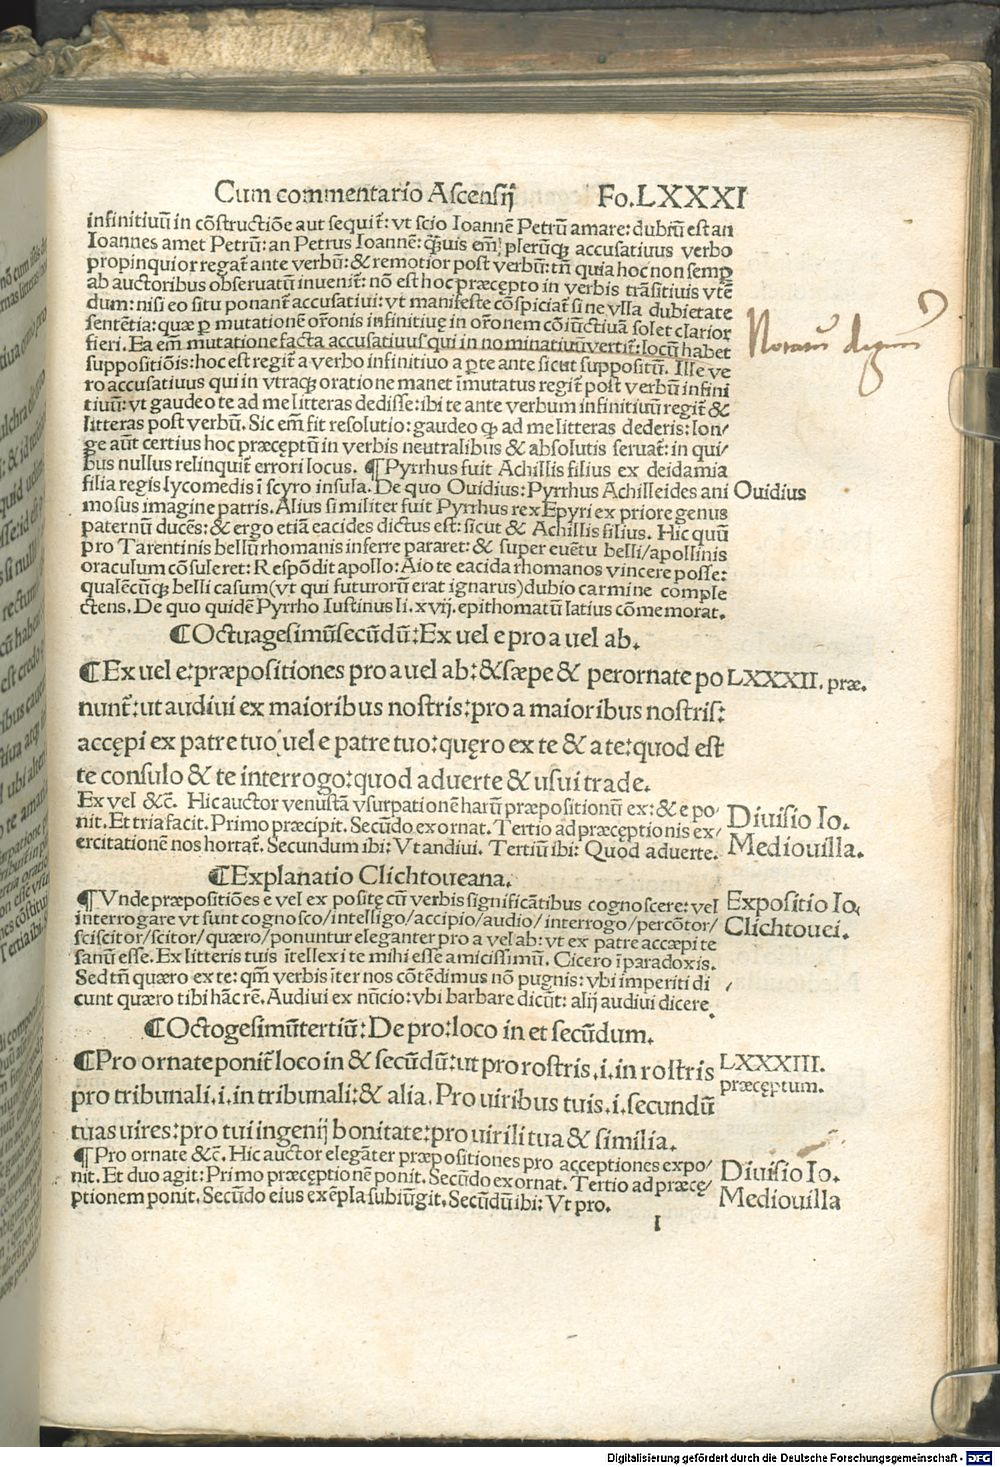 Cum commentario Ascensij Fo. LXXXI
infinitiuũ in cõstructiõe aut sequit̃: vt scio Ioannẽ Petrũ amare: dubiũ est an
Ioannes amet Petrũ: an Petrus Ioannẽ: q̃uis em̃ plerũq; accusatiuus verbo
propinquior regat̃ ante verbũ: & remotior post verbũ: tñ quia hoc non semp
ab auctoribus obseruatũ inuenit̃: nõ est hoc præcepto in verbis trãsitiuis vtẽ
dum: nisi eo situ ponant̃ accusatiui: vt manifeste cõspiciat̃ sine vlla dubietate
sentẽtia: quæ ꝑ mutationẽ or̃onis infinitiuę in or̃onem cõiũctiuã solet clarior
fieri. Ea em̃ mutatione facta accusatiuus qui in nominatiuũ vertit̃: locũ habet
suppositiõis: hoc est regit̃ a verbo infinitiuo a ꝑte ante sicut suppositũ. Ille ve
ro accusatiuus qui in vtraq; oratione manet ĩmutatus regit̃ post verbũ infini
tiuũ: vt gaudeo te ad me litteras dedisse: ibi te ante verbum infinitiuũ regit̃ &
litteras post verbũ. Sic em̃ fit resolutio: gaudeo ꝙ ad me litteras dederis: lon-
ge aũt certius hoc præceptũ in verbis neutralibus & absolutis seruat̃: in qui/
bus nullus relinquit̃ errori locus. ¶Pyrrhus fuit Achillis filius ex deidamia
filia regis lycomedis ĩ scyro insula. De quo Ouidius: Pyrrhus Achilleides ani Ouidius
mosus imagine patris. Alius similiter fuit Pyrrhus rex Epyri ex priore genus
paternũ ducẽs: & ergo etiã eacides dictus est: sicut & Achillis filius. Hic quũ
pro Tarentinis bellũ rhomanis inferre pararet: & super euẽtu belli/apollinis
oraculum cõsuleret: Respõdit apollo: Aio te eacida rhomanos vincere posse:
qualẽcũq; belli casum (vt qui futurorũ erat ignarus) dubio carmine comple
ctens. De quo quidẽ Pyrrho Iustinus li. xvij. epithomatũ latius cõmemorat.
¶Octuagesimũsecũdũ: Ex uel e pro a uel ab.
¶Ex uel e: præpositiones pro a uel ab: & sæpe & perornate po LXXXII. præ.
nunt̃: ut audiui ex maioribus nostris: pro a maioribus nostris:
accępi ex patre tuo uel e patre tuo: quęro ex te & a te: quod est
te consulo & te interrogo: quod aduerte & usui trade.
Ex vel &c̃. Hic auctor venustã vsurpationẽ harũ præpositionũ ex: & e po- Diuisio Io.
nit. Et tria facit. Primo præcipit. Secũdo exornat. Tertio ad præcęptionis ex/
ercitationẽ nos hortat̃. Secundum ibi: Vt audiui. Tertiũ ibi: Quod aduerte. Mediouilla.
¶Explanatio Clichtoueana.
¶Vnde præpositiões e vel ex positę cũ verbis significãtibus cognoscere: vel Expositio Io.
interrogare vt sunt cognosco/intelligo/accipio/audio/interrogo/percõtor/ Clichtouei.
sciscitor/scitor/quæro/ponuntur eleganter pro a vel ab: vt ex patre accæpi te
sanũ esse. Ex litteris tuis ĩtellexi te mihi esse amicissimũ. Cicero ĩ paradoxis.
Sed tñ quæro ex te: qm̃ verbis ĩter nos cõtẽdimus nõ pugnis: vbi imperiti di
cunt quæro tibi hãc rẽ. Audiui ex nũcio: vbi barbare dicũt: alij audiui dicere.
¶Octogesimũtertiũ: De pro: loco in et secũdum.
¶Pro ornate ponit̃ loco in & secũdũ: ut pro rostris .i. in rostris LXXXIII.
præcęptum.
pro tribunali .i. in tribunali: & alia. Pro uiribus tuis .i. secundũ
tuas uires: pro tui ingenij bonitate: pro uirili tua & similia.
¶Pro ornate &c̃. Hic auctor elegãter præpositiones pro acceptiones expo/ Diuisio Io.
nit. Et duo agit: Primo præcęptionẽ ponit. Secũdo exornat. Tertio ad præcę/
ptionem ponit. Secũdo eius exẽpla subiũgit. Secũdũ ibi: Vt pro. Mediouilla
I
Notatu dignum
Digitalisierung gefördert durch die Deutsche Forschungsgemeinschaft - DFG